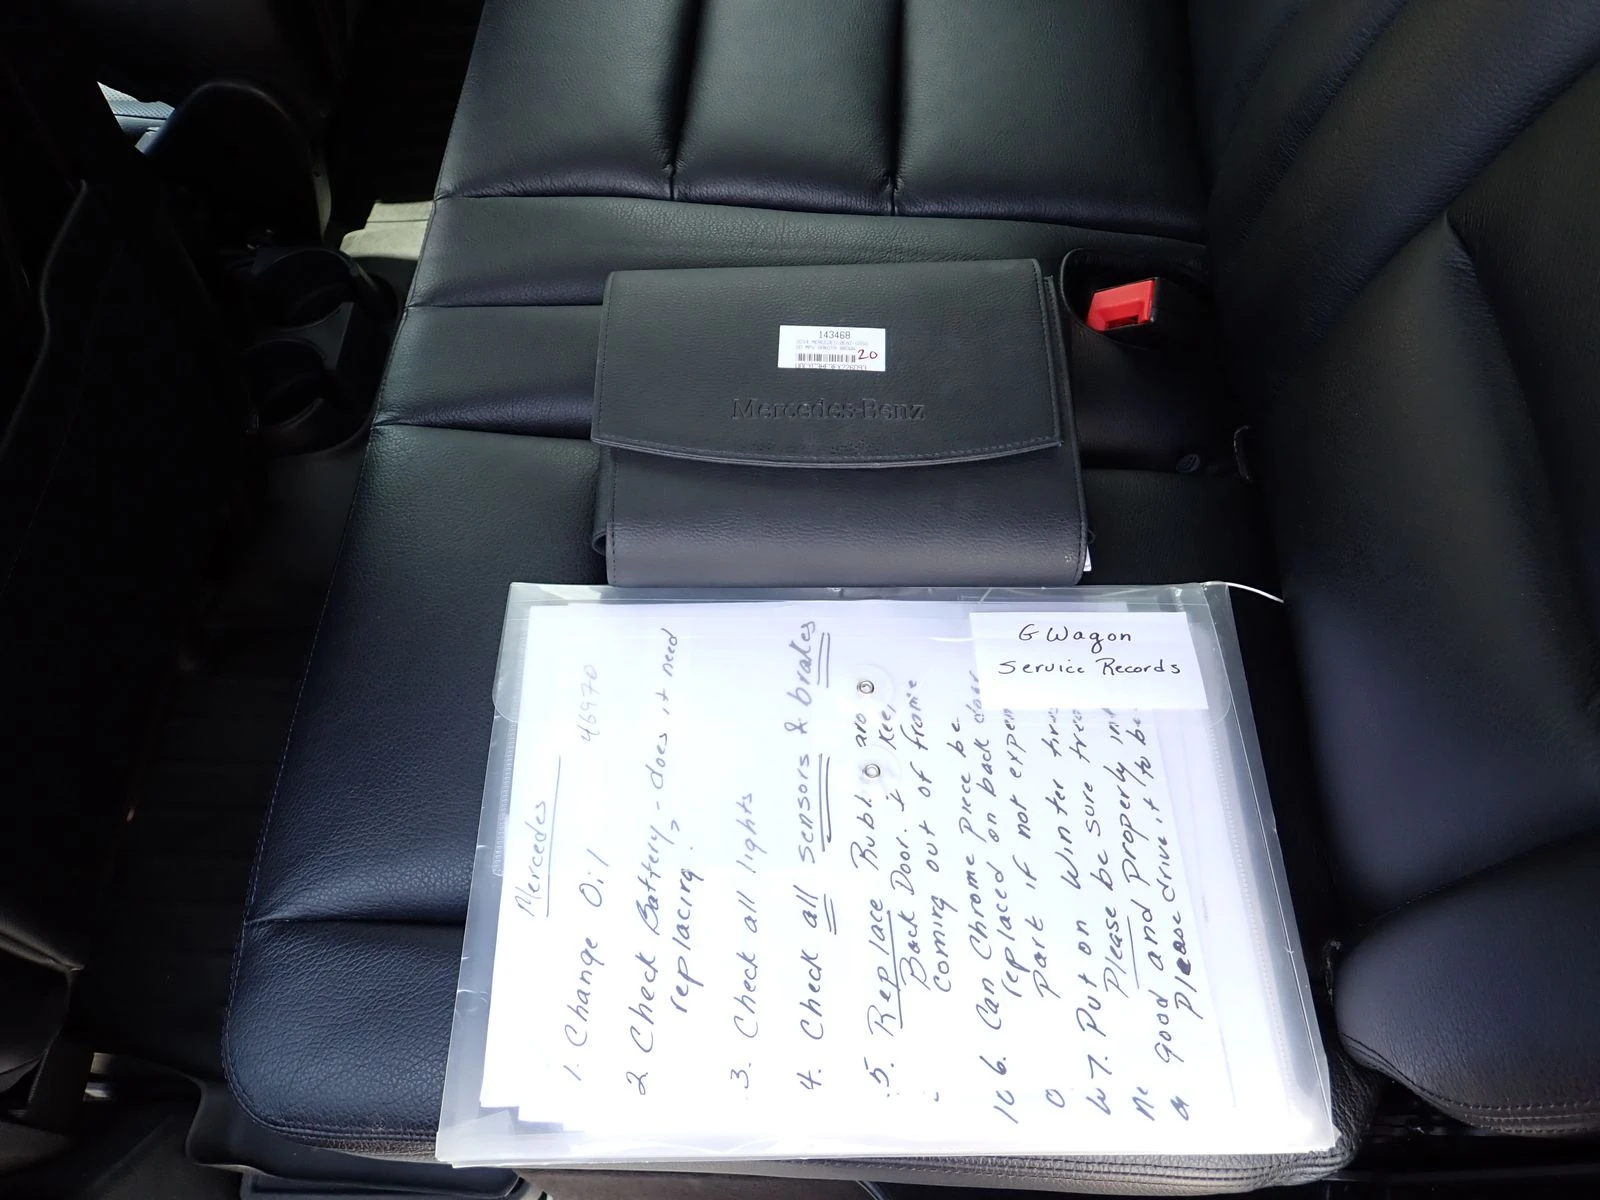 143468
20
Mercedes-Benz
G Wagon
Service Records
Mercedes
46970
1. Change Oil
2. Check Battery - does it need
replacing?
3. Check all lights
4. Check all sensors & brakes
5. Replace
Back Door. it
coming out of frame
6. Can Chrome piece be
replaced on back door
Part if not
7. Put on Winter
Please be sure
good and properly
Please drive it to